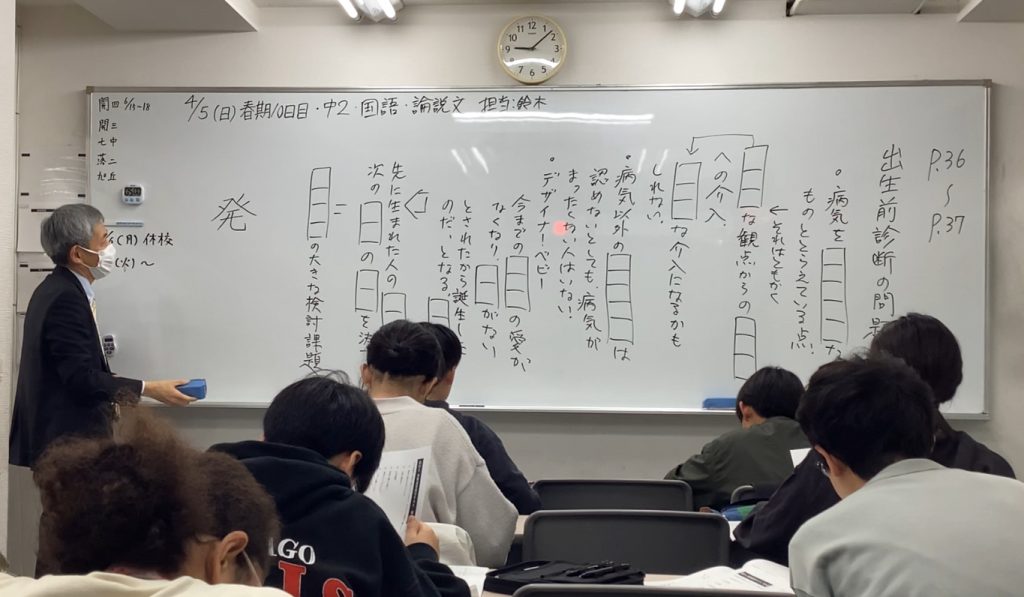 4/5(日)春期10日目・中2・国語・論説文 担当:鈴木
開四 6/15~18
開三
七中
落二
旭丘
(月)休校
(火)~
P.36
~
P.37
出生前診断の問題
・病気を
ものととらえている点!
←それはともかく
な観点からの
への介入
な介入になるかも
しれない。
・病気以外の
は
認めないとしても、病気が
まったくない人はいない!
・デザイナーベビー
今までの
の愛が
なくなり、
がない
とされたから誕生した
のだ、となる
先に生まれた人の
次の
の
を
=
の大きな検討課題
発
AGO